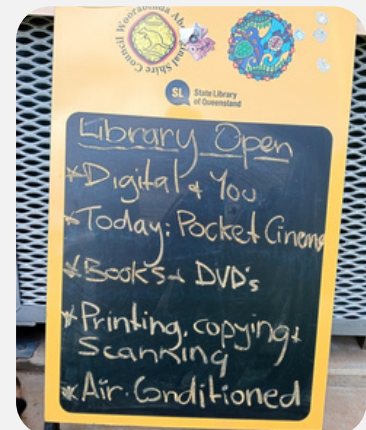 Woorabinda Aboriginal Shire Council
SL State Library
of Queensland
Library Open
* Digital & You
* Today: Pocket Cinema
* Books + DVD's
* Printing, copying +
Scanning
* Air. Conditioned